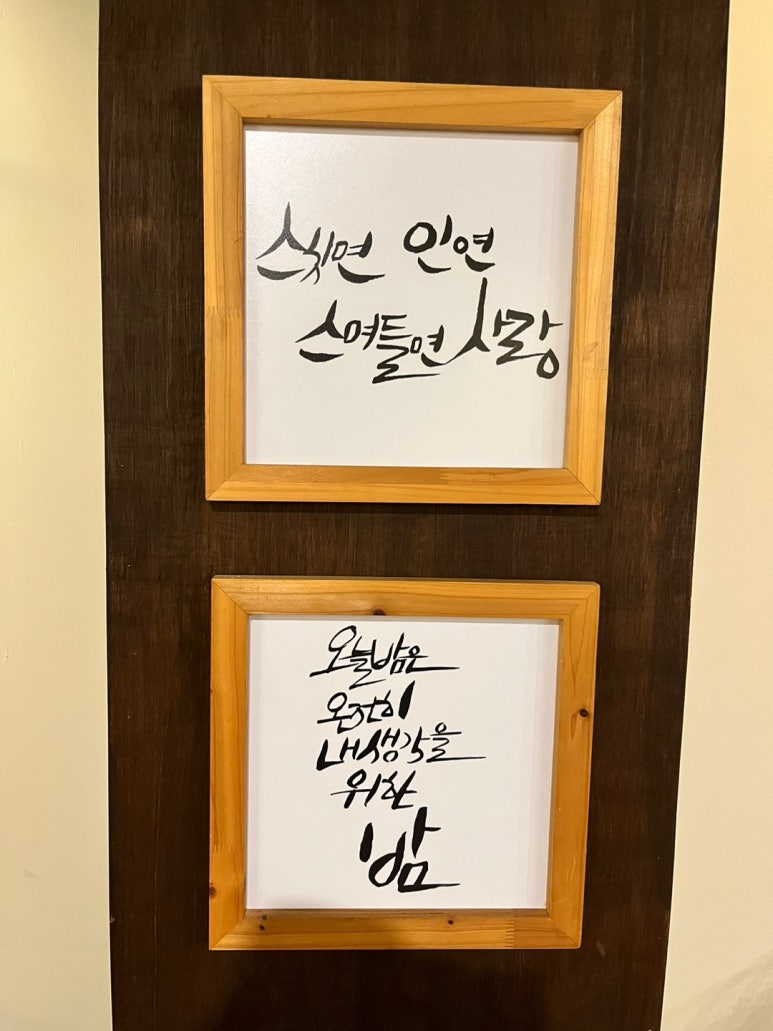 스치면 인연
스며들면 사랑
오늘밤은
온전히
내 생각을
위한
밤